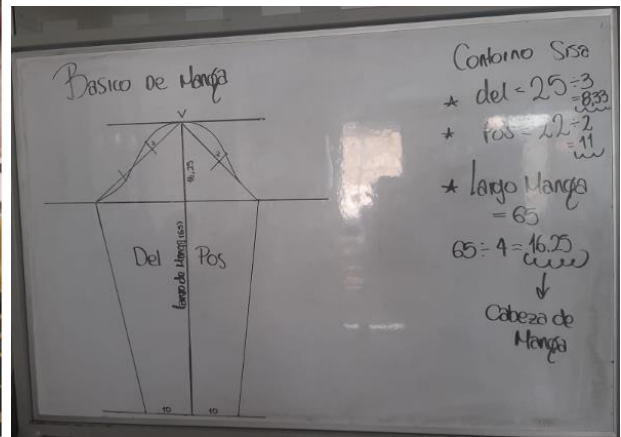 Basico De Manga
V
1
2
2
16,25
Largo de Manga (65)
Del
Pos
10
10
Contorno Sisa
* del = 25 ÷ 3
= 8,33
* Pos = 22 ÷ 2
= 11
* Largo Manga
= 65
65 ÷ 4 = 16.25
Cabeza de
Manga